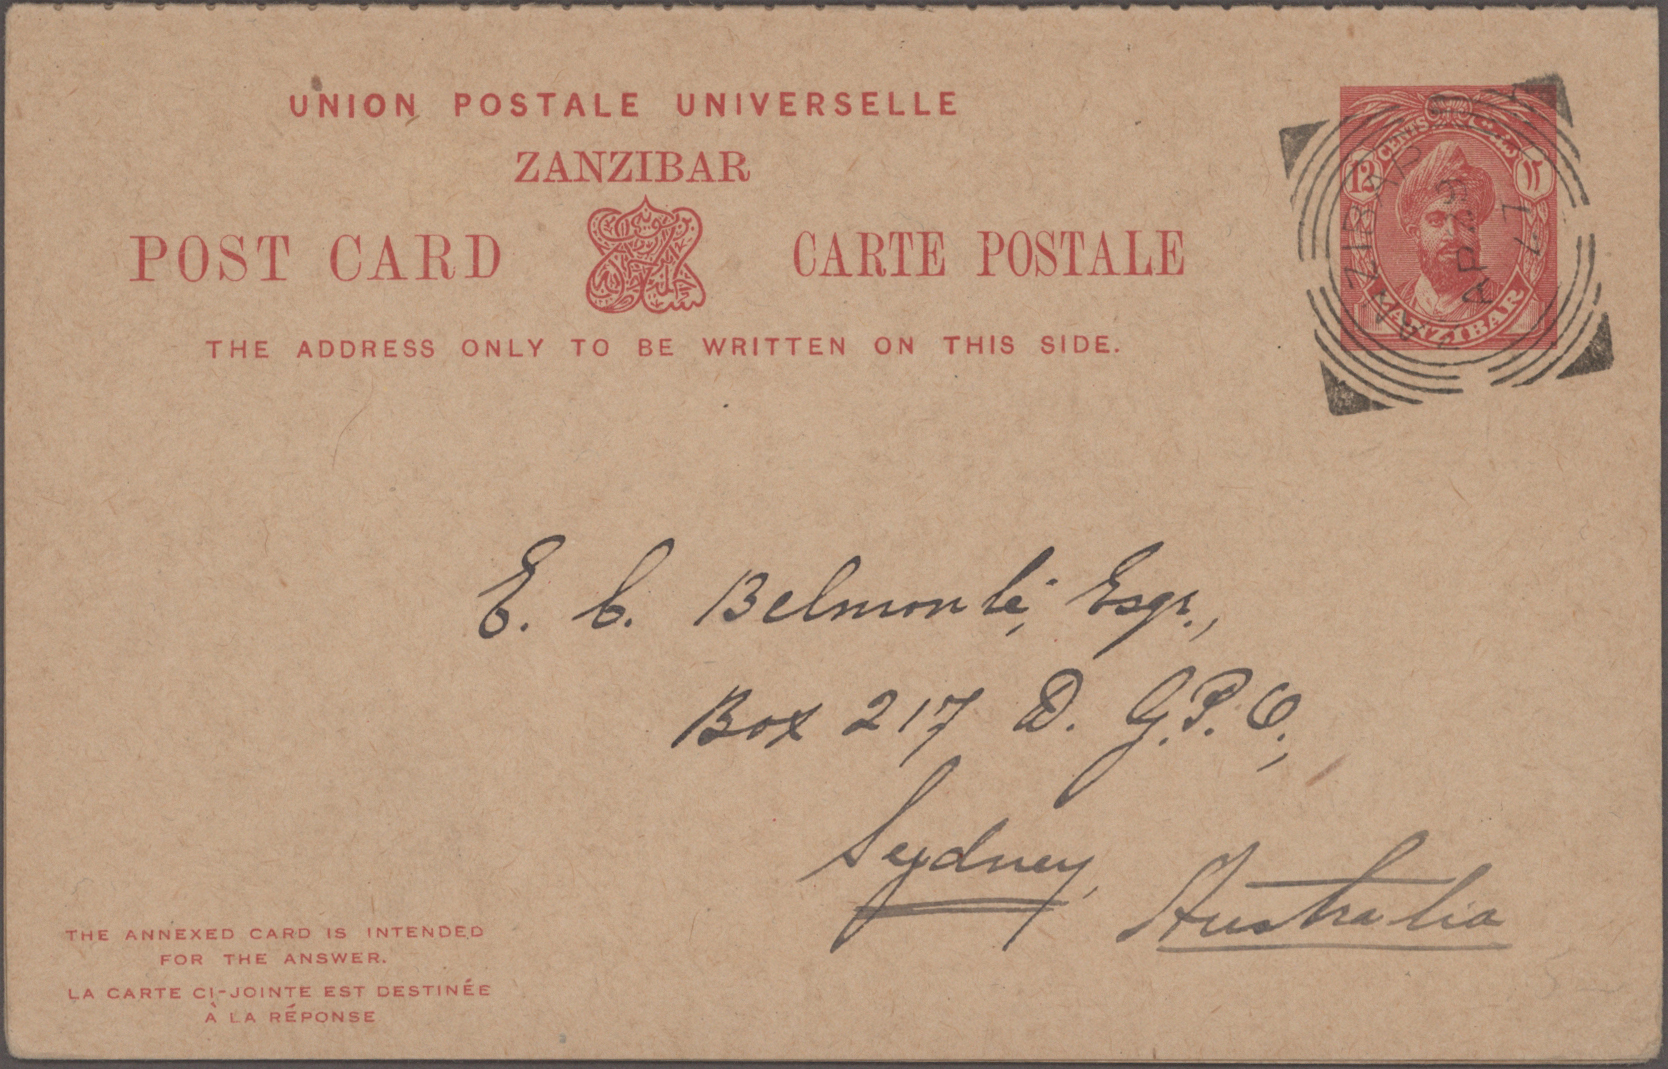 UNION POSTALE UNIVERSELLE
ZANZIBAR
POST CARD CARTE POSTALE
THE ADDRESS ONLY TO BE WRITTEN ON THIS SIDE.
CENTS
12 ١٢
ZANZIBAR
ZANZIBAR
AP 29
E. C. Belmonte, Esqr.,
Box 217 D. G.P.O.,
Sydney,
Australia
THE ANNEXED CARD IS INTENDED
FOR THE ANSWER.
LA CARTE CI-JOINTE EST DESTINÉE
À LA RÉPONSE